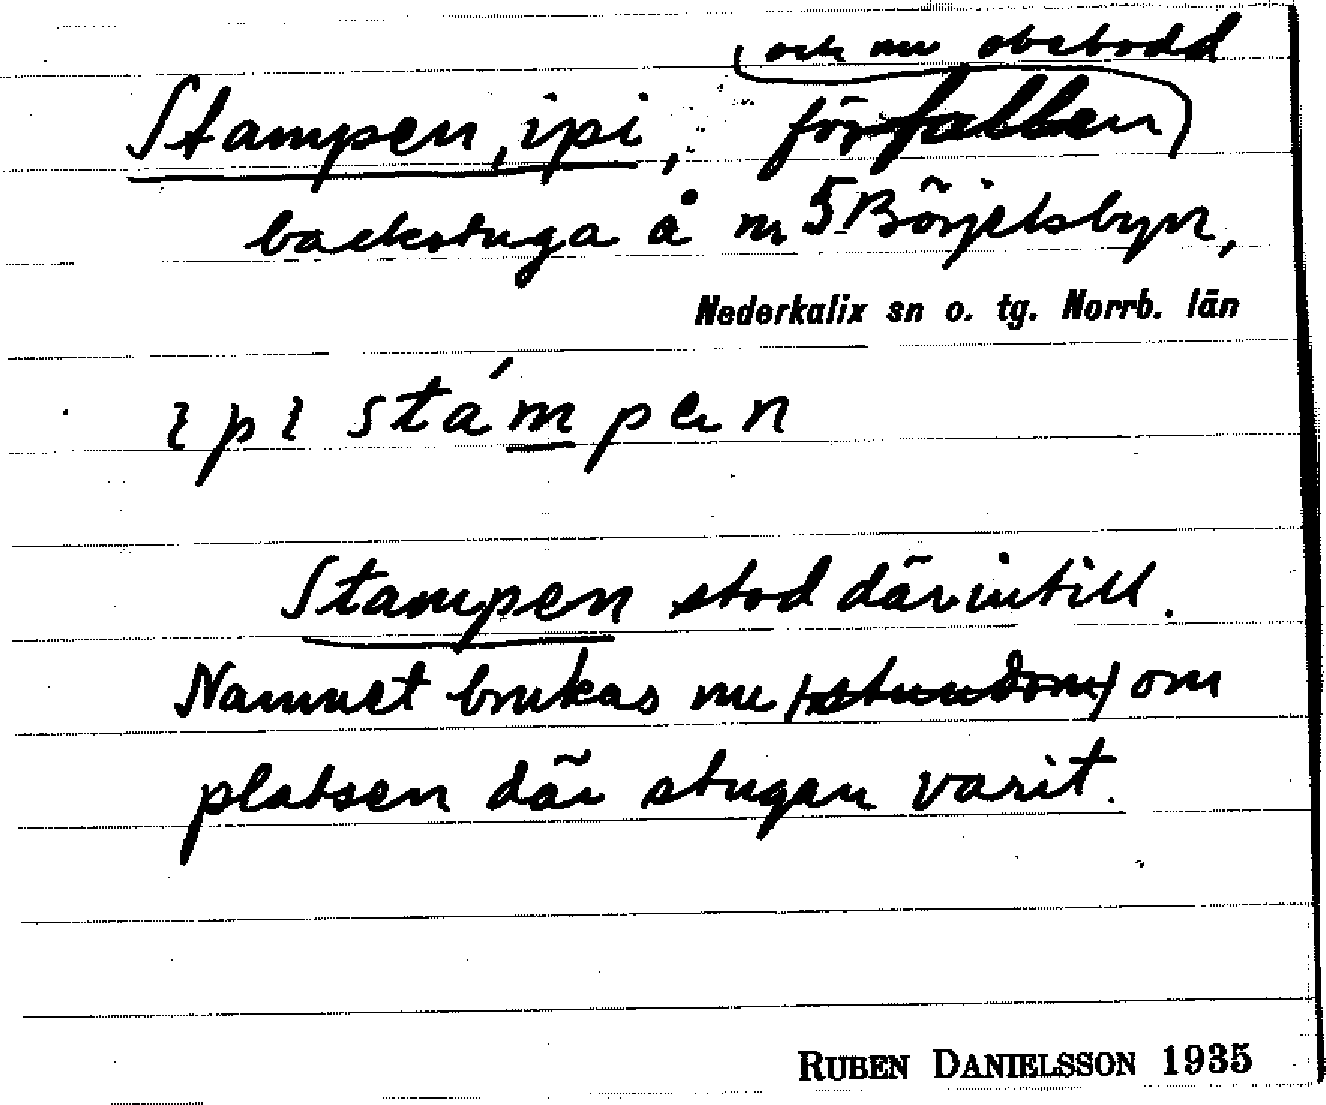 (och nu obebodd
Stampen, ipi, förfallen)
backstuga å n 5 Börjelsbyn,
Nederkalix sn o. tg. Norrb. län
ıpı stámpen
Stampen stod därintill.
Namnet brukas nu (stundom) om
platsen där stugan varit.
RUBEN DANIELSSON 1935